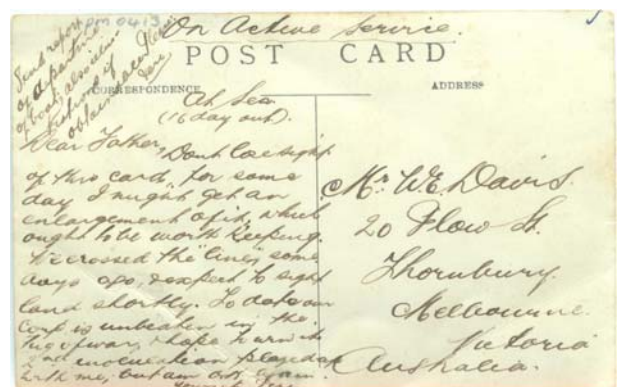 pm 0413
On Active Service.
POST CARD
Send report
of departure
of boat, also
if
obtainable
CORRESPONDENCE
ADDRESS
At Sea
(16 day out).
Dear Father,
Dont lose sight
of this card, for some
day I might get an
enlargement of it, which
ought to be worth keeping.
We crossed the "line" some
days ago, & expect to sight
land shortly. To date our
Corp is unbeaten in the
tug of war, & hope to win it.
2nd inoculation played up
with me, but am O.K. again.
Mr. W.E. Davis.
20 Flow St.
Thornbury.
Melbourne.
Victoria
Australia.